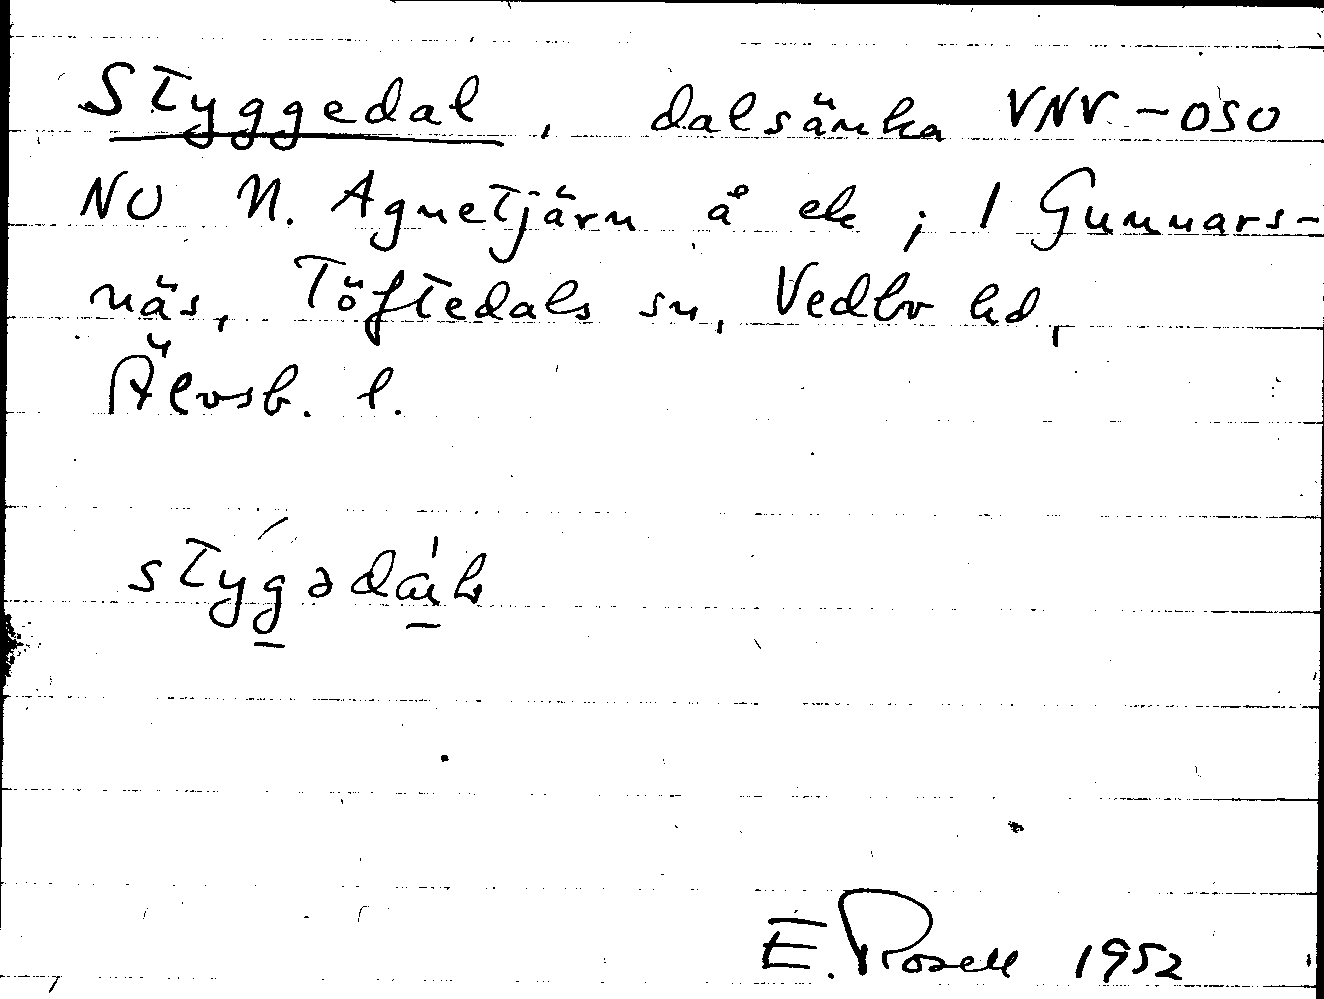 Styggedal, dalsänka VNV-OSO
NO N. Agnetjärn å ek; 1 Gunnars-
näs, Töftedals sn, Vedbo hd,
Älvsb. l.
E. Rosell 1952